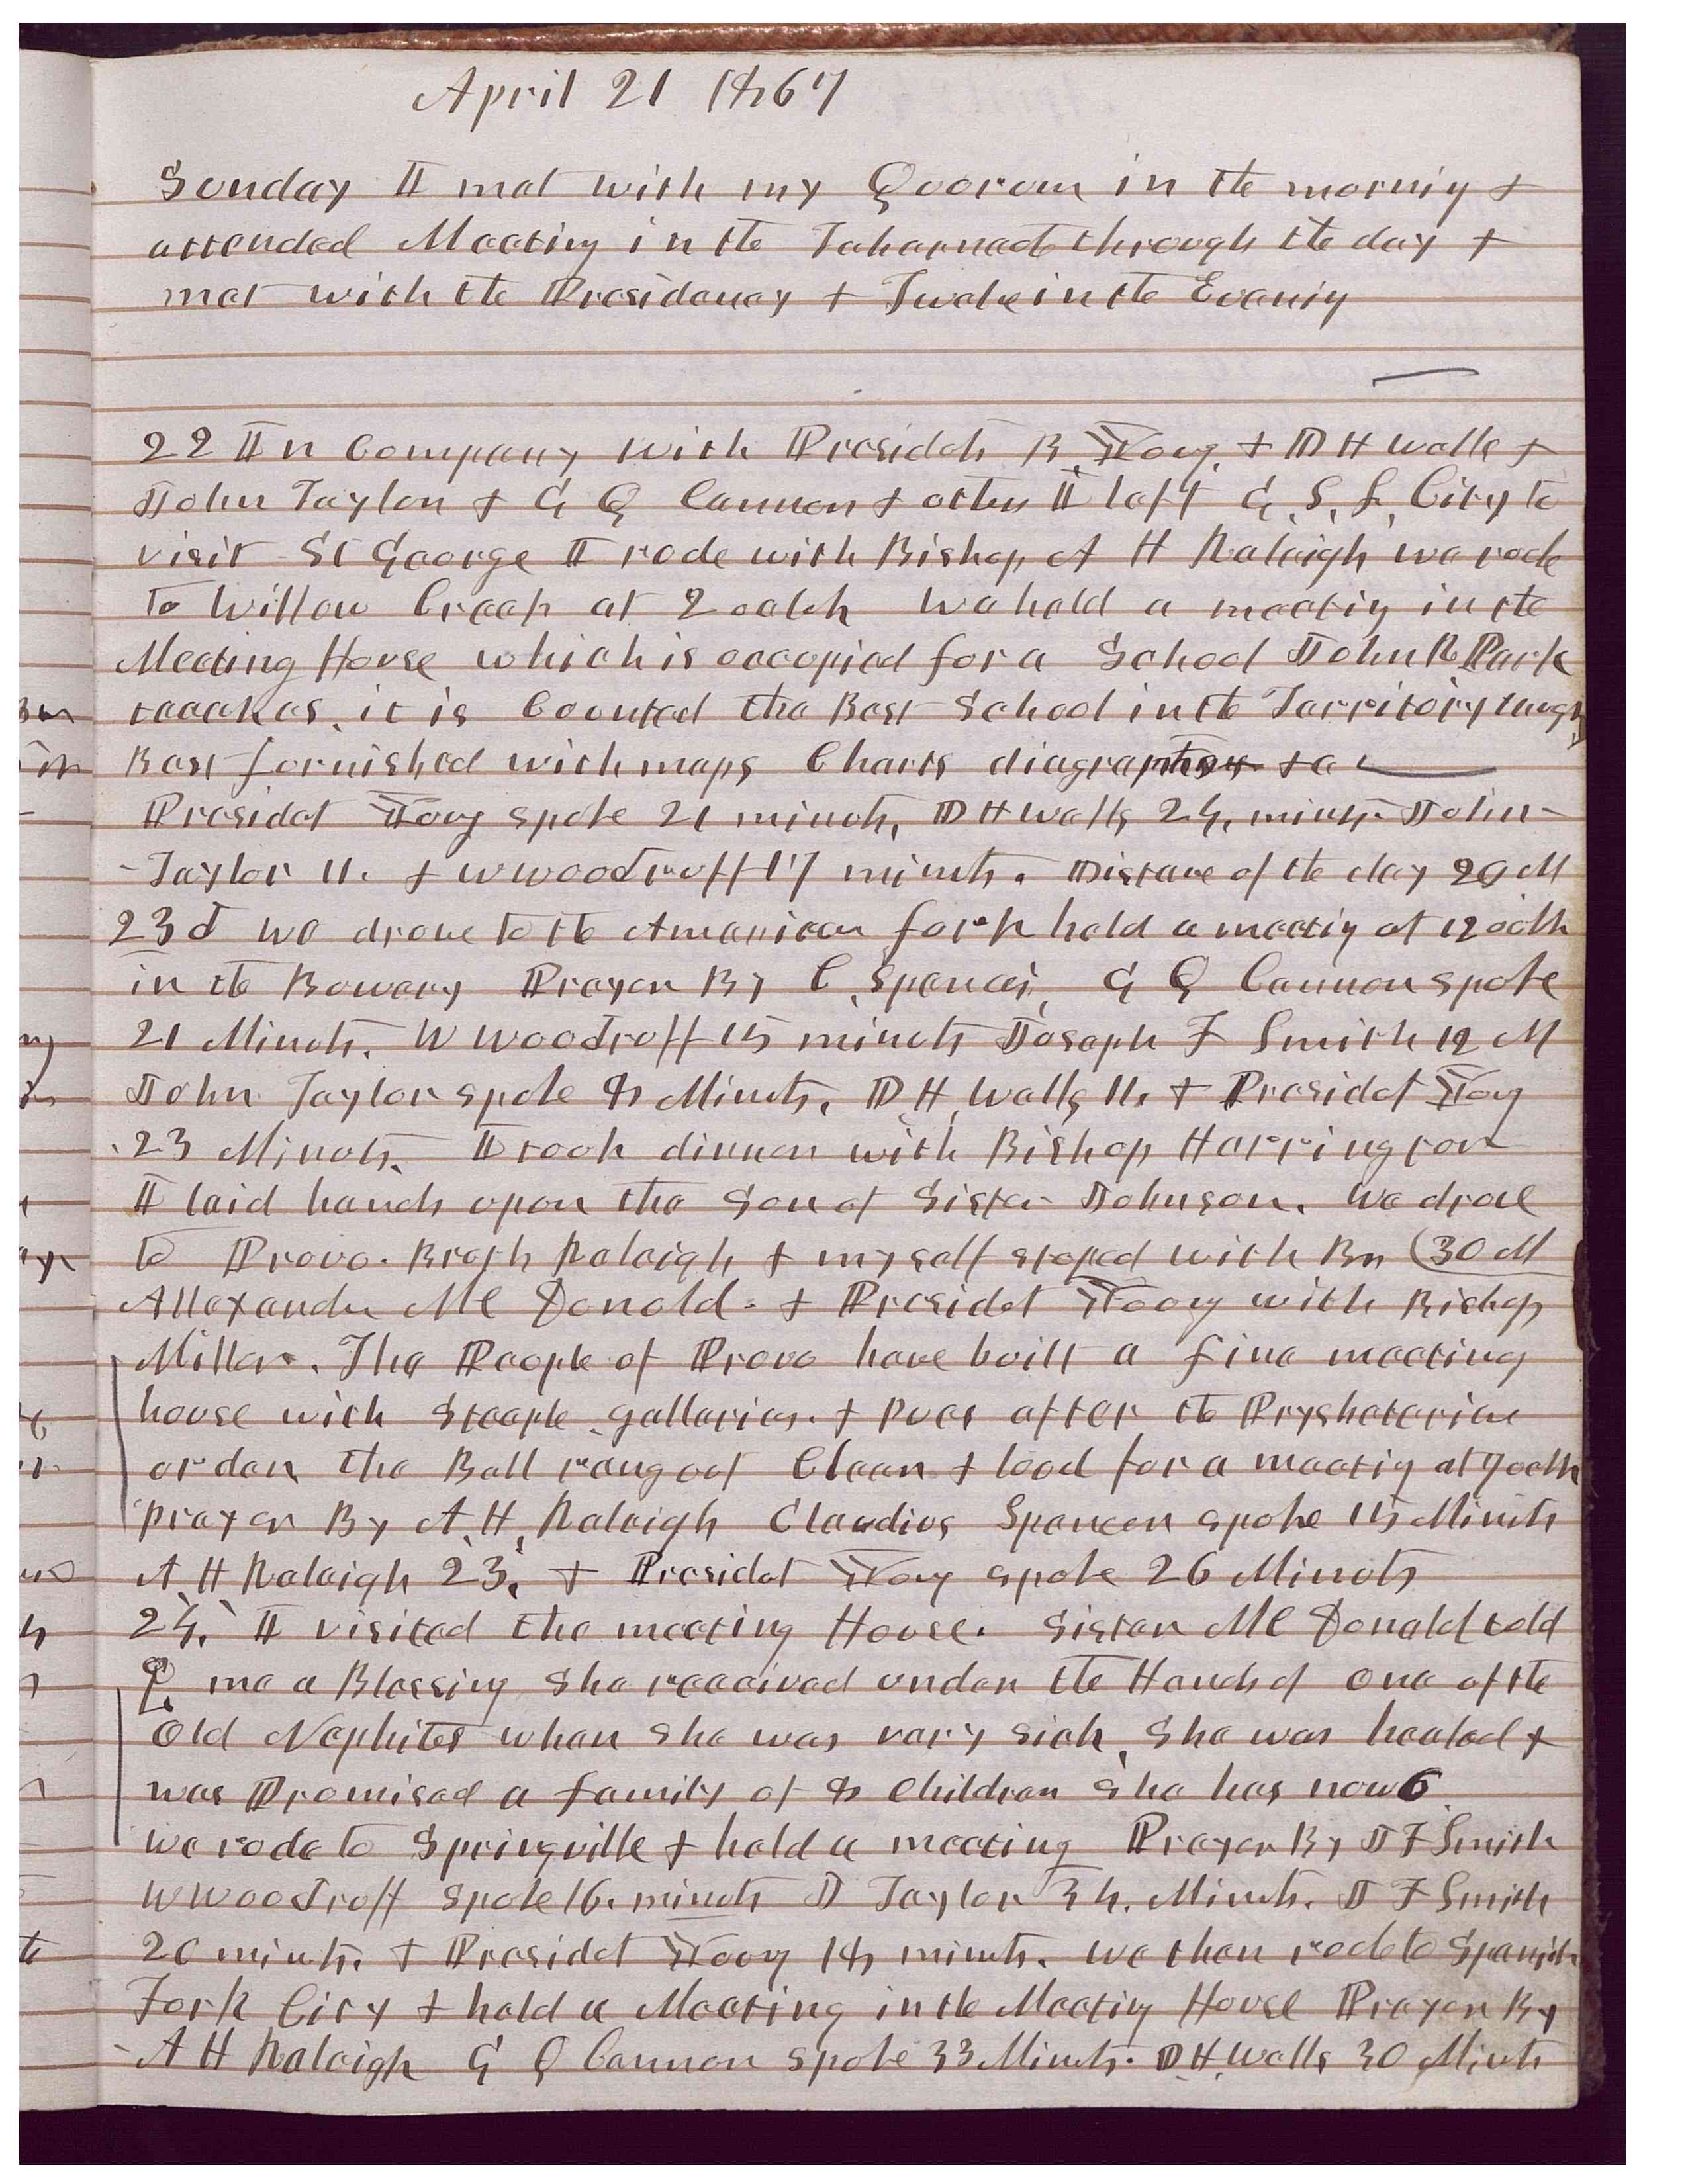 April 21 1867
Sunday I met with my Quorum in the morning &
attended Meeting in the Tabernacle through the day &
met with the Presidency & Twelve in the Evening
22 In Company with Presidets B. Young. & D H Wells &
John Taylor & G Q Cannon & others I left G. S. L. City to
visit St George I rode with Bishop A H Raleigh we rode
to Willow Creek at 2 oclok We held a meeting in the
Meeting House which is occupied for a School John R Park
teaches. it is Counted the Best School in the Territory
Best furnished with maps Charts &c
Presidet Young spoke 21 minuts, D H Wells 24, minuts John
Taylor 11. & W Woodruff 17 minuts. Distance of the day 20 M
23d we drove to the American fork held a meeting at 12 oclk
in the Bowery Prayer By C. Spencer, G Q Cannon spoke
21 Minuts. W Woodruff 15 minuts Joseph F Smith 12 M
John Taylor spoke 8 Minuts, D H, Wells 11. & Presidet Young
23 Minuts. I took dinner with Bishop Harrington
I laid hands upon the Son of Sister Johnson. We drove
to Provo. Broth Raleigh & myself stoped with Br (30 M
Allexander Mc Donald. & Presidet Young with Bishop
Miller. The People of Provo have built a fine meeting
house with Steeple gallaries. & pues after the Prysbeterian
order the Bell rang out Clear & loud for a meeting at 7 oclk
prayer By A. H, Raleigh Claudius Spencer spoke 15 Minuts
A. H Raleigh 23, & Presidet Young spoke 26 Minuts
24, I visited the meeting House. Sister Mc Donald told
me a Blessing She received under the Hands of one of the
old Nephites when she was very sick, She was healed &
was Promised a family of 8 Children She has now 6
we rode to Springville & held a meeting Prayer By J F Smith
W Woodruff spoke 16. minuts J Taylor 34. Minuts. J F Smith
20 minuts. & Presidet Young 18 minuts. we then rode to Spanish
Fork City & held a Meeting in the Meeting House Prayer By
A H Raleigh G Q Cannon spoke 33 Minuts. D H. Wells 30 Minuts